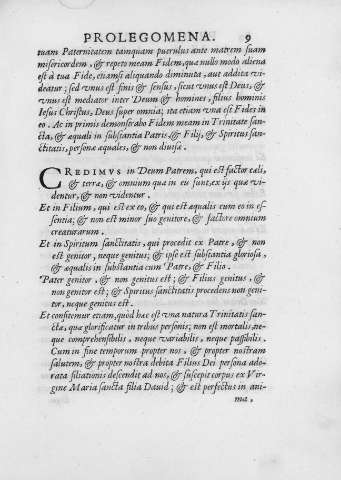 PROLEGOMENA. 9
tuam Paternitatem tamquam puerulus ante matrem suam
misericordem, & repeto meam Fidem, quæ nullo modo aliena
est à tua Fide, etiamsi aliquando diminuta, aut addita vi-
deatur; sed vnus est finis & sensus, sicut vnus est Deus, &
vnus est mediator inter Deum & homines, filius hominis
Iesus Christus, Deus super omnia; ita etiam vna est Fides in
eo. At in primis demonstrabo Fidem meam in Trinitate san-
cta, & æquali in substantia Patris, & Filij, & Spiritus san-
ctitatis, personæ æquales, & non diuisæ.
CREDIMVS in Deum Patrem, qui est factor cæli,
& terræ, & omnium quæ in eis sunt, ex ijs quæ vi-
dentur, & non videntur.
Et in Filium, qui est ex eo, & qui est æqualis cum eo in es-
sentia; & non est minor suo genitore, & factore omnium
creaturarum.
Et in Spiritum sanctitatis, qui procedit ex Patre, & non
est genitor, neque genitus; & ipse est substantia gloriosa,
& æqualis in substantia cum Patre, & Filio.
Pater genitor, & non genitus est; & Filius genitus, &
non genitor est; & Spiritus sanctitatis procedens non geni-
tor, neque genitus est.
Et confitemur etiam, quòd hæc est vna natura Trinitatis san-
cta, quæ glorificatur in tribus personis; non est mortalis, ne-
que comprehensibilis, neque variabilis, neque passibilis.
Cum in fine temporum propter nos, & propter nostram
salutem, & propter nostra debita Filius Dei persona ado-
rata filiationis descendit ad nos, & suscepit corpus ex Vir-
gine Maria sancta filia Dauid; & est perfectus in ani-
ma,